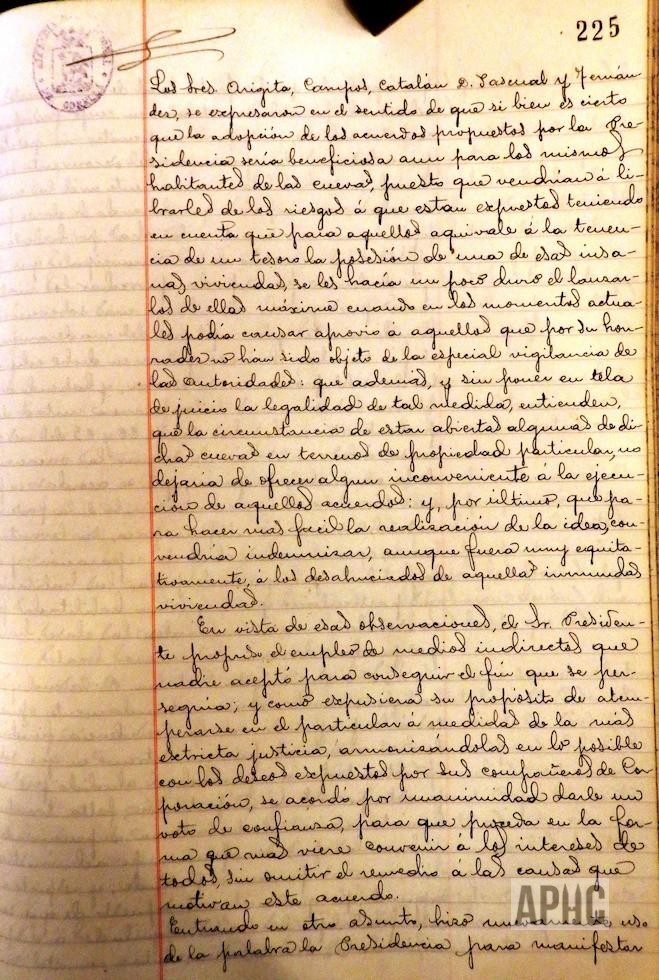 225
Los Sres. Origita, Campos, Catalán D. Pascual y Fernán-
dez, se expresaron en el sentido de que si bien es cierto
que la adopción de los acuerdos propuestos por la Pre-
sidencia seria beneficiosa aun para los mismos
habitantes de las cuevas, puesto que vendrian á li-
brarles de los riesgos á que estan expuestos teniendo
en cuenta que para aquellos aquivale á la tenen-
cia de un tesoro la posesión de una de esas insa-
nas viviendas, se les hacía un poco duro el lanzar-
los de ellas máxime cuando en los momentos actua-
les podía causar aprovio á aquellos que por su hon-
radez no han sido objeto de la especial vigilancia de
las autoridades: que además, y sin poner en tela
de juicio la legalidad de tal medida, entienden,
que la circunstancia de estar abiertas algunas de di-
chas cuevas en terrenos de propiedad particular, no
dejaria de ofrecer algun inconveniente á la ejecu-
ción de aquellos acuerdos: y, por último, que pa-
ra hacer mas facil la realización de la idea, con-
vendria indemnizar, aunque fuera muy equita-
tivamente, á los desahuciados de aquellas inmundas
viviendas.
En vista de esas observaciones, el Sr. Presiden-
te propuso el empleo de medios indirectos que
nadie aceptó para conseguir el fin que se per-
seguia; y como expusiera su propósito de atem-
perarse en el particular á medidas de la más
extricta justicia, armonizándolas en lo posible
con los deseos expuestos por sus compañeros de Cor-
poración, se acordó por unanimidad darle un
voto de confianza, para que proceda en la for-
ma que mas viere convenir á los intereses de
todos, sin omitir el remedio á las causas que
motivan este acuerdo.
Entrando en otro asunto, hizo nuevamente uso
de la palabra la Presidencia para manifestar
APHC